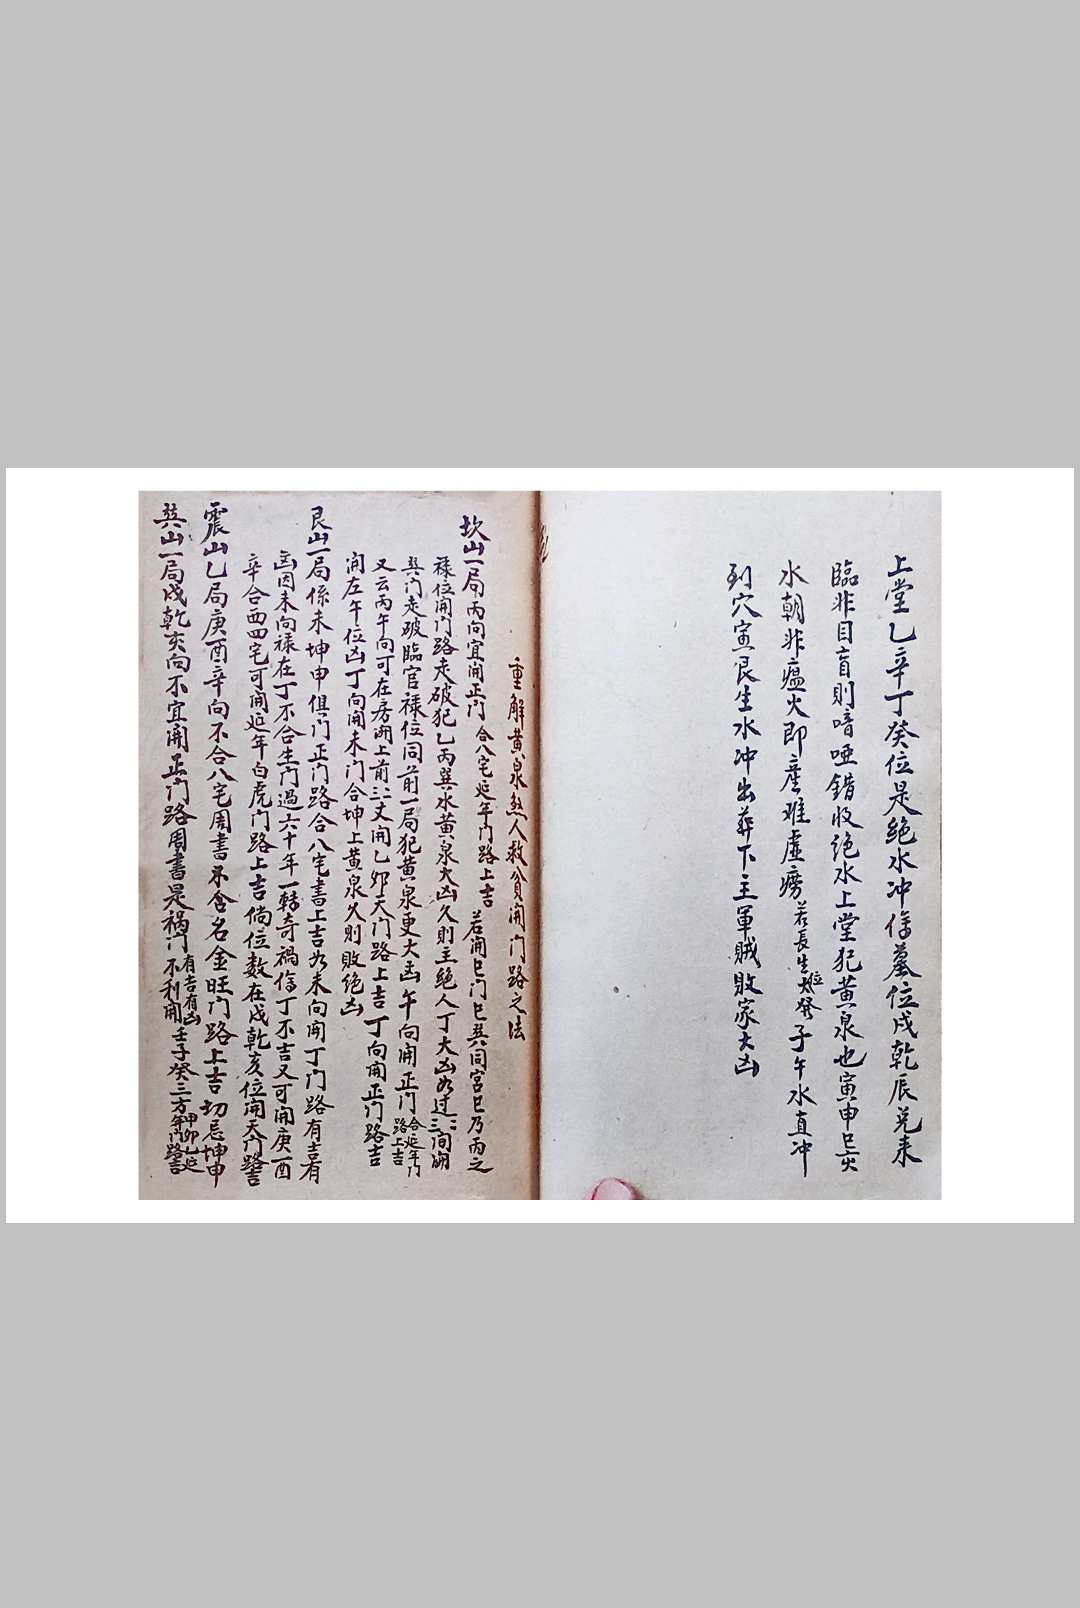 上堂乙辛丁癸位是绝水冲俻墓位戌乾辰兑未
臨非目盲則喑啞錯收绝水上堂犯黄泉也寅申巳亥
水朝非瘟火即産难虚痨若長生位大發子午水直冲
到穴寅艮生水冲出葬下主軍贼敗家大凶
重解黄泉煞人救貧開门路之法
坎山一局丙向宜開正门合八宅延年门路上吉若開巳门巳巽同宫巳乃丙之
禄位開门路走破犯乙丙巽水黄泉大凶久則主绝人丁大凶为过二三間開
巽门走破臨官禄位同前一局犯黄泉更大凶午向開正门合延年门路上吉
又云丙午向可在房開上前二三丈開乙卯天门路上吉丁向開正门路吉
開左午位凶丁向開未门合坤上黄泉久則敗绝凶
艮山一局係未坤申俱门正门路合八宅書上吉为未向開丁门路有吉有
凶因未向禄在丁不合生门過六十年一转奇禍俻丁不吉又可開庚酉
辛合西四宅可開延年白虎门路上吉倘位数在戌乾亥位開天门路吉
震山乙局庚酉辛向不合八宅周書不含名金旺门路上吉切忌坤申
巽山一局戌乾亥向不宜開正门路周書是祸门有吉有凶不利開壬子癸三方甲卯乙延年门路吉